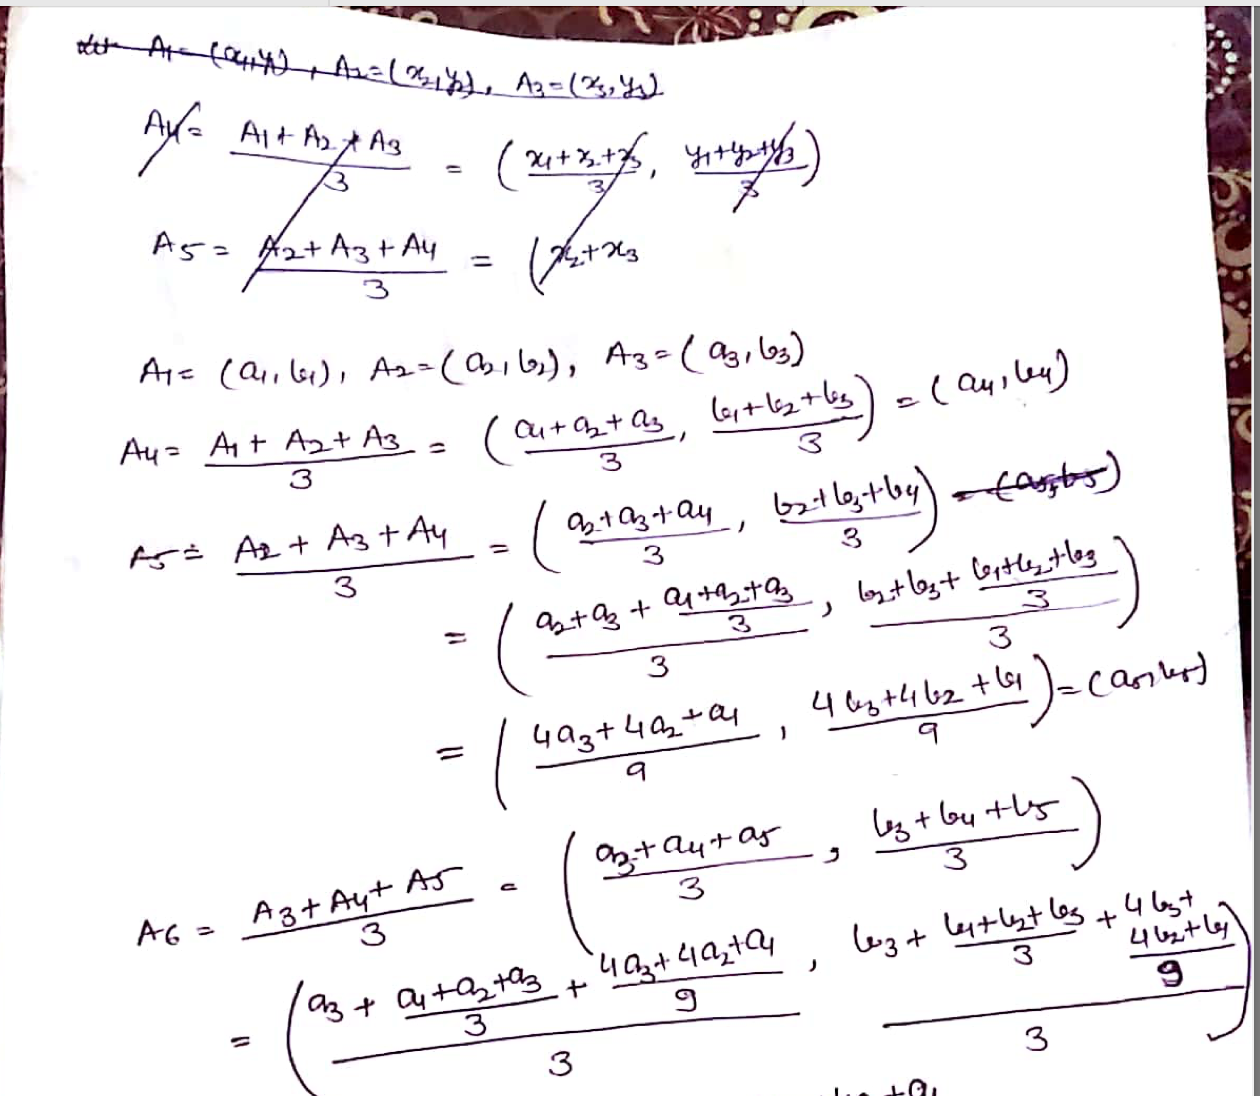 let A1 = (x1, y1), A2 = (x2, y2), A3 = (x3, y3)
A4 = (A1 + A2 + A3)/3 = ((x1 + x2 + x3)/3, (y1 + y2 + y3)/3)
A5 = (A2 + A3 + A4)/3 = (x2 + x3
A1 = (a1, b1), A2 = (a2, b2), A3 = (a3, b3)
A4 = (A1 + A2 + A3)/3 = ((a1 + a2 + a3)/3, (b1 + b2 + b3)/3) = (a4, b4)
A5 = (A2 + A3 + A4)/3 = ((a2 + a3 + a4)/3, (b2 + b3 + b4)/3) = (a5, b5)
= ((a2 + a3 + (a1 + a2 + a3)/3)/3, (b2 + b3 + (b1 + b2 + b3)/3)/3)
= ((4a3 + 4a2 + a1)/9, (4b3 + 4b2 + b1)/9) = (a5, b5)
A6 = (A3 + A4 + A5)/3 = ((a3 + a4 + a5)/3, (b3 + b4 + b5)/3)
= ((a3 + (a1 + a2 + a3)/3 + (4a3 + 4a2 + a1)/9)/3, (b3 + (b1 + b2 + b3)/3 + (4b3 + 4b2 + b1)/9)/3)